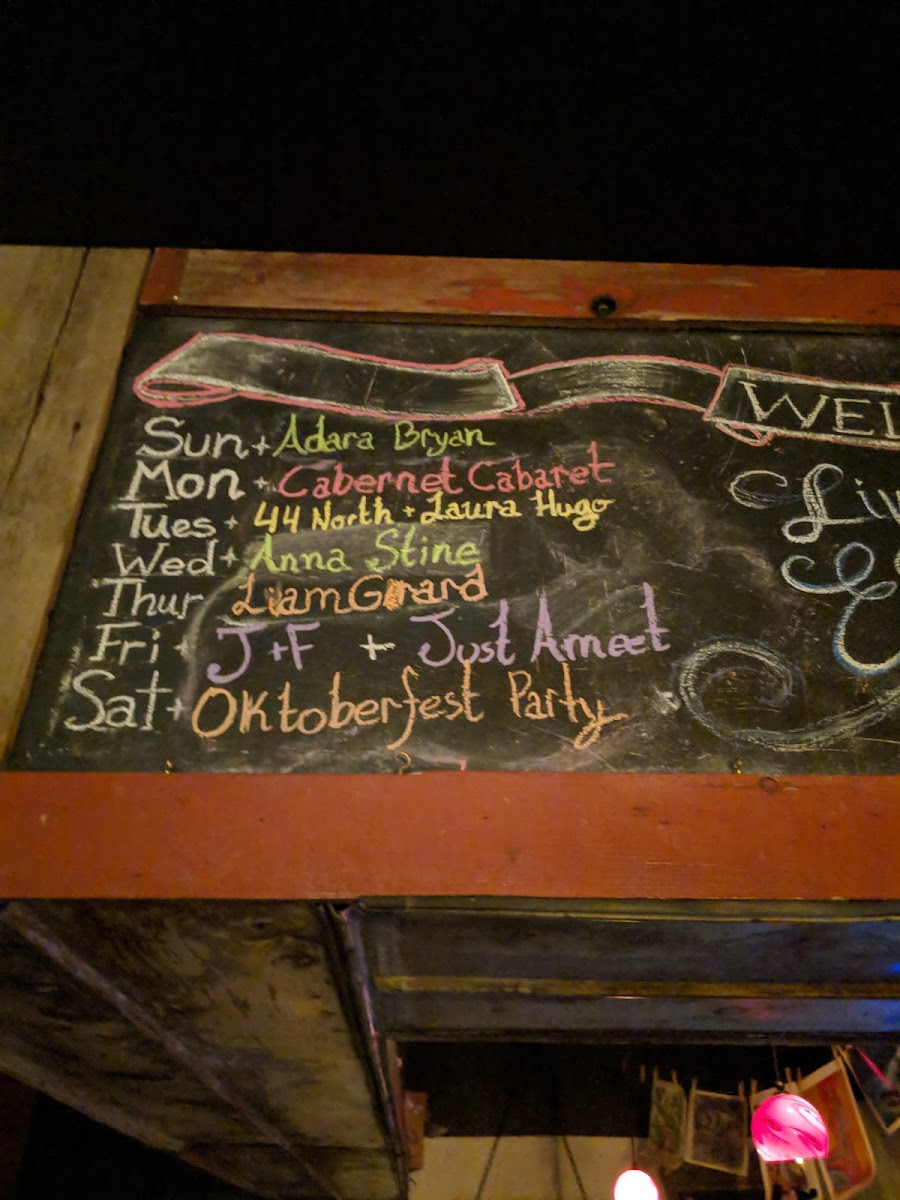 Sun + Adara Bryan
Mon + Cabernet Cabaret
Tues + 44 North + Laura Hugo
Wed + Anna Stine
Thur Liam Girard
Fri + J+F + Just Ameet
Sat + Oktoberfest Party
WEL
Liv